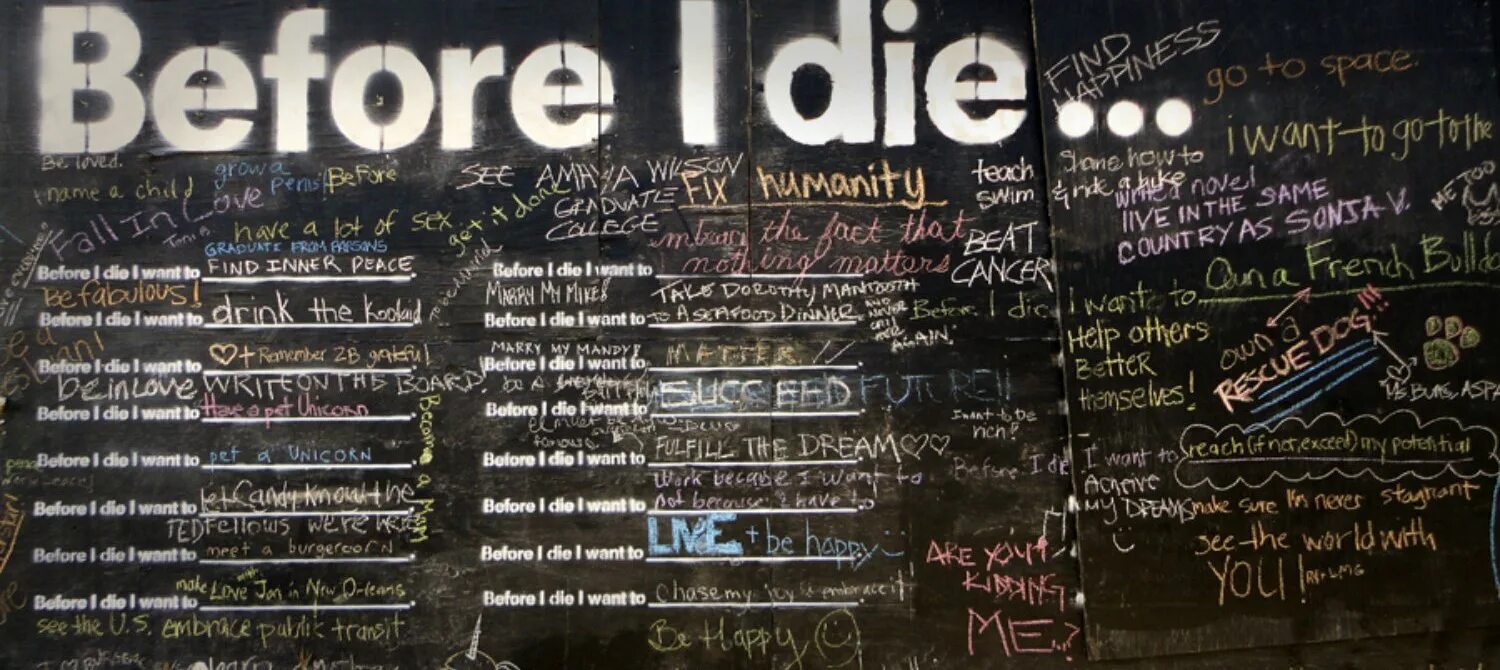 Before I die...
Be loved.
name a child
grow a
penis
Before
Fall In Love
have a lot of SEX
get it done
GRADUATE FROM PARSONS
Before I die I want to FIND INNER PEACE.
Be fabulous!
Before I die I want to drink the koolaid.
Before I die I want to ♡+ Remember 2B grateful.
be in love WRITE ON THE BOARD!
Before I die I want to Have a pet Unicorn.
Before I die I want to pet a UNICORN.
Become a Mom
Before I die I want to let Candy know the.
TED fellows were here
Before I die I want to meet a burgercorn.
make LOVE with Jan in New Orleans
Before I die I want to
see the U.S. embrace public transit
SEE AMAYA WILSON
GRADUATE
COLLEGE
FIX humanity
embrace the fact that
nothing matters
Before I die I want to
MARRY MY MIKE!
TAKE DOROTHY MANTOOTH
Before I die I want to TO A SEAFOOD DINNER.
AND NEVER CALL HER AGAIN.
MARRY MY MANDY!
Before I die I want to MATTER
SUCCEED FUTURE!!
Before I die I want to
FULFILL THE DREAM♡♡
Before I die I want to
Work because I want to
Before I die I want to not because I have to.
LIVE + be happy
Before I die I want to
Before I die I want to Chase my joy & embrace it!
Be Happy
teach
swim
BEAT
CANCER
Before I die
I want to be
rich!
Before I die
ARE YOU
KIDDING
ME?
FIND
HAPPINESS
go to space.
i want to go to the
how to
& ride a bike
write a novel
LIVE IN THE SAME
COUNTRY AS SONJA V.
ME TOO
I want to Own a French Bulldo
Help others
Better
themselves!
own a
RESCUE DOG!!!
I want to reach (if not exceed) my potential
Achieve
MY DREAMS
make sure I'm never stagnant
see the world with
YOU!